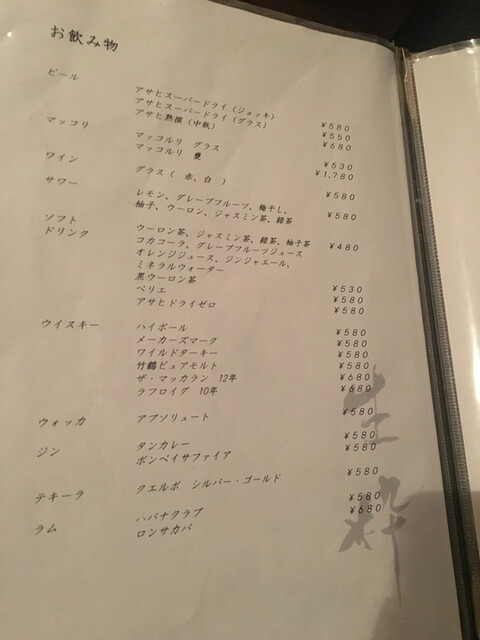 お飲み物
ビール
アサヒスーパードライ（ジョッキ） ¥580
アサヒスーパードライ（グラス） ¥550
アサヒ熟撰（中瓶） ¥680
マッコリ
マッコルリ グラス ¥530
マッコルリ 甕 ¥1,780
ワイン
グラス（ 赤、白 ） ¥580
サワー
レモン、グレープフルーツ、梅干し、 ¥580
柚子、ウーロン、ジャスミン茶、緑茶
ソフト
ドリンク
ウーロン茶、ジャスミン茶、緑茶、柚子茶 ¥480
コカコーラ、グレープフルーツジュース
オレンジジュース、ジンジャエール、
ミネラルウォーター
黒ウーロン茶 ¥530
ペリエ ¥580
アサヒドライゼロ ¥580
ウイスキー
ハイボール ¥580
メーカーズマーク ¥580
ワイルドターキー ¥580
竹鶴ピュアモルト ¥580
ザ・マッカラン 12年 ¥680
ラフロイグ 10年 ¥680
ウォッカ
アブソリュート ¥580
ジン
タンカレー ¥580
ボンベイサファイア ¥580
テキーラ
クエルボ シルバー・ゴールド ¥580
ラム
ハバナクラブ ¥580
ロンサカパ ¥680
生粋